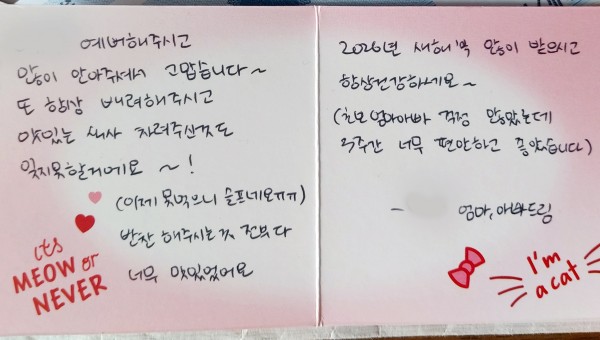 예뻐해주시고
많이 안아주셔서 고맙습니다~
또 항상 배려해주시고
맛있는 식사 차려주신것도
잊지못할거에요 ~!
(이제 못먹으니 슬프네요ㅠㅠ)
반찬 해주시는것 전부다
너무 맛있었어요
its
MEOW or
NEVER
2026년 새해 복 많이 받으시고
항상건강하세요~
(초보 엄마아빠 걱정 많았는데
5주간 너무 편안하고 좋았습니다)
- 엄마, 아빠드림
I'm
a cat